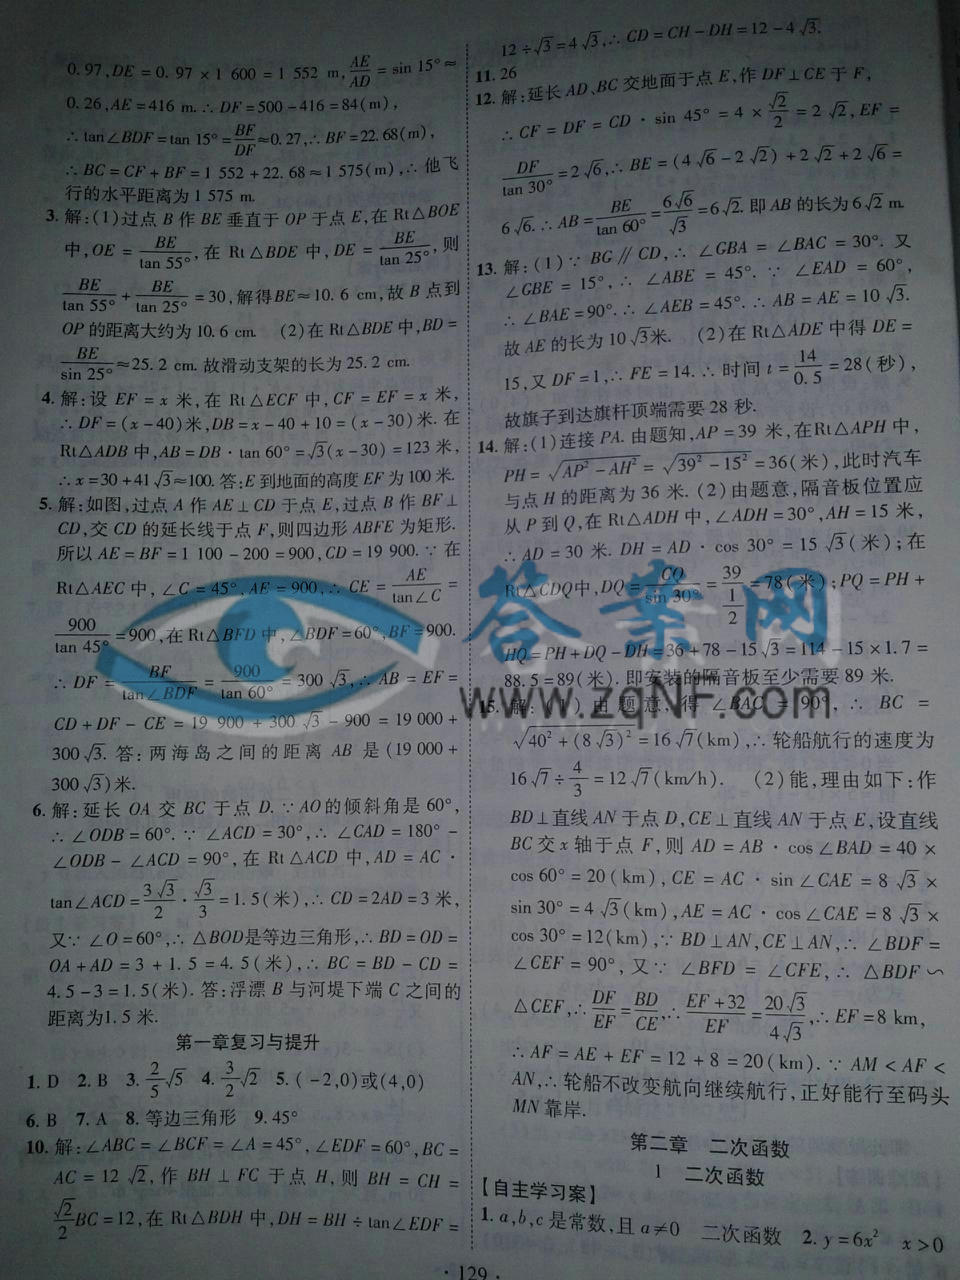 0.97,DE=0.97×1 600=1 552 m,AE/AD=sin 15°≈
0.26,AE=416 m.∴DF=500-416=84(m),
∴tan∠BDF=tan 15°=BF/DF≈0.27,∴BF=22.68(m),
∴BC=CF+BF=1 552+22.68≈1 575(m).∴他飞
行的水平距离为1 575 m.
3.解:(1)过点B作BE垂直于OP于点E,在Rt△BOE
中,OE=BE/tan 55°,在Rt△BDE中,DE=BE/tan 25°,则
BE/tan 55°+BE/tan 25°=30,解得BE≈10.6 cm,故B点到
OP的距离大约为10.6 cm. (2)在Rt△BDE中,BD=
BE/sin 25°≈25.2 cm.故滑动支架的长为25.2 cm.
4.解:设EF=x米,在Rt△ECF中,CF=EF=x米,
∴DF=(x-40)米,DB=x-40+10=(x-30)米.在
Rt△ADB中,AB=DB·tan 60°=√3(x-30)=123米,
∴x=30+41√3≈100.答:E到地面的高度EF为100米.
5.解:如图,过点A作AE⊥CD于点E,过点B作BF⊥
CD,交CD的延长线于点F,则四边形ABFE为矩形.
所以AE=BF=1 100-200=900,CD=19 900.∵在
Rt△AEC中,∠C=45°,AE=900,∴CE=AE/tan∠C=
900/tan 45°=900,在Rt△BFD中,∠BDF=60°,BF=900.
∴DF=BF/tan∠BDF=900/tan 60°=300√3,∴AB=EF=
CD+DF-CE=19 900+300√3-900=19 000+
300√3.答:两海岛之间的距离AB是(19 000+
300√3)米.
6.解:延长OA交BC于点D.∵AO的倾斜角是60°,
∴∠ODB=60°.∵∠ACD=30°,∴∠CAD=180°-
∠ODB-∠ACD=90°,在Rt△ACD中,AD=AC·
tan∠ACD=3√3/2·√3/3=1.5(米),∴CD=2AD=3米,
又∵∠O=60°,∴△BOD是等边三角形,∴BD=OD=
OA+AD=3+1.5=4.5(米),∴BC=BD-CD=
4.5-3=1.5(米).答:浮漂B与河堤下端C之间的
距离为1.5米.
第一章复习与提升
1.D 2.B 3.2/5√5 4.3/2√2 5.(-2,0)或(4,0)
6.B 7.A 8.等边三角形 9.45°
10.解:∠ABC=∠BCF=∠A=45°,∠EDF=60°,BC=
AC=12√2,作BH⊥FC于点H,则BH=CH=
√2/2BC=12,在Rt△BDH中,DH=BH÷tan∠EDF=
12÷√3=4√3,∴CD=CH-DH=12-4√3.
11.26
12.解:延长AD、BC交地面于点E,作DF⊥CE于F,
∴CF=DF=CD·sin 45°=4×√2/2=2√2,EF=
DF/tan 30°=2√6,∴BE=(4√6-2√2)+2√2+2√6=
6√6.∴AB=BE/tan 60°=6√6/√3=6√2.即AB的长为6√2 m.
13.解:(1)∵BG∥CD,∴∠GBA=∠BAC=30°.又
∠GBE=15°,∴∠ABE=45°.∵∠EAD=60°,
∴∠BAE=90°.∴∠AEB=45°.∴AB=AE=10√3.
故AE的长为10√3米. (2)在Rt△ADE中得DE=
15,又DF=1,∴FE=14.∴时间t=14/0.5=28(秒),
故旗子到达旗杆顶端需要28秒.
14.解:(1)连接PA.由题知,AP=39米,在Rt△APH中,
PH=√(AP²-AH²)=√(39²-15²)=36(米),此时汽车
与点H的距离为36米.(2)由题意,隔音板位置应
从P到Q,在Rt△ADH中,∠ADH=30°,AH=15米,
∴AD=30米.DH=AD·cos 30°=15√3(米);在
Rt△CDQ中,DQ=CQ/sin 30°=39/(1/2)=78(米);PQ=PH+
HQ=PH+DQ-DH=36+78-15√3≈114-15×1.7=
88.5≈89(米).即安装的隔音板至少需要89米.
15.解:(1)由题意,得∠BAC=90°,∴BC=
√(40²+(8√3)²)=16√7(km),∴轮船航行的速度为
16√7÷4/3=12√7(km/h). (2)能,理由如下:作
BD⊥直线AN于点D,CE⊥直线AN于点E,设直线
BC交x轴于点F,则AD=AB·cos∠BAD=40×
cos 60°=20(km),CE=AC·sin∠CAE=8√3×
sin 30°=4√3(km),AE=AC·cos∠CAE=8√3×
cos 30°=12(km).∵BD⊥AN,CE⊥AN,∴∠BDF=
∠CEF=90°,又∵∠BFD=∠CFE,∴△BDF∽
△CEF,∴DF/EF=BD/CE,∴(EF+32)/EF=20√3/4√3,∴EF=8 km,
∴AF=AE+EF=12+8=20(km).∵AM<AF<
AN,∴轮船不改变航向继续航行,正好能行至码头
MN靠岸.
第二章 二次函数
1 二次函数
【自主学习案】
1.a,b,c是常数,且a≠0 二次函数 2.y=6x² x>0
·129·
答案网
www.zqNF.com